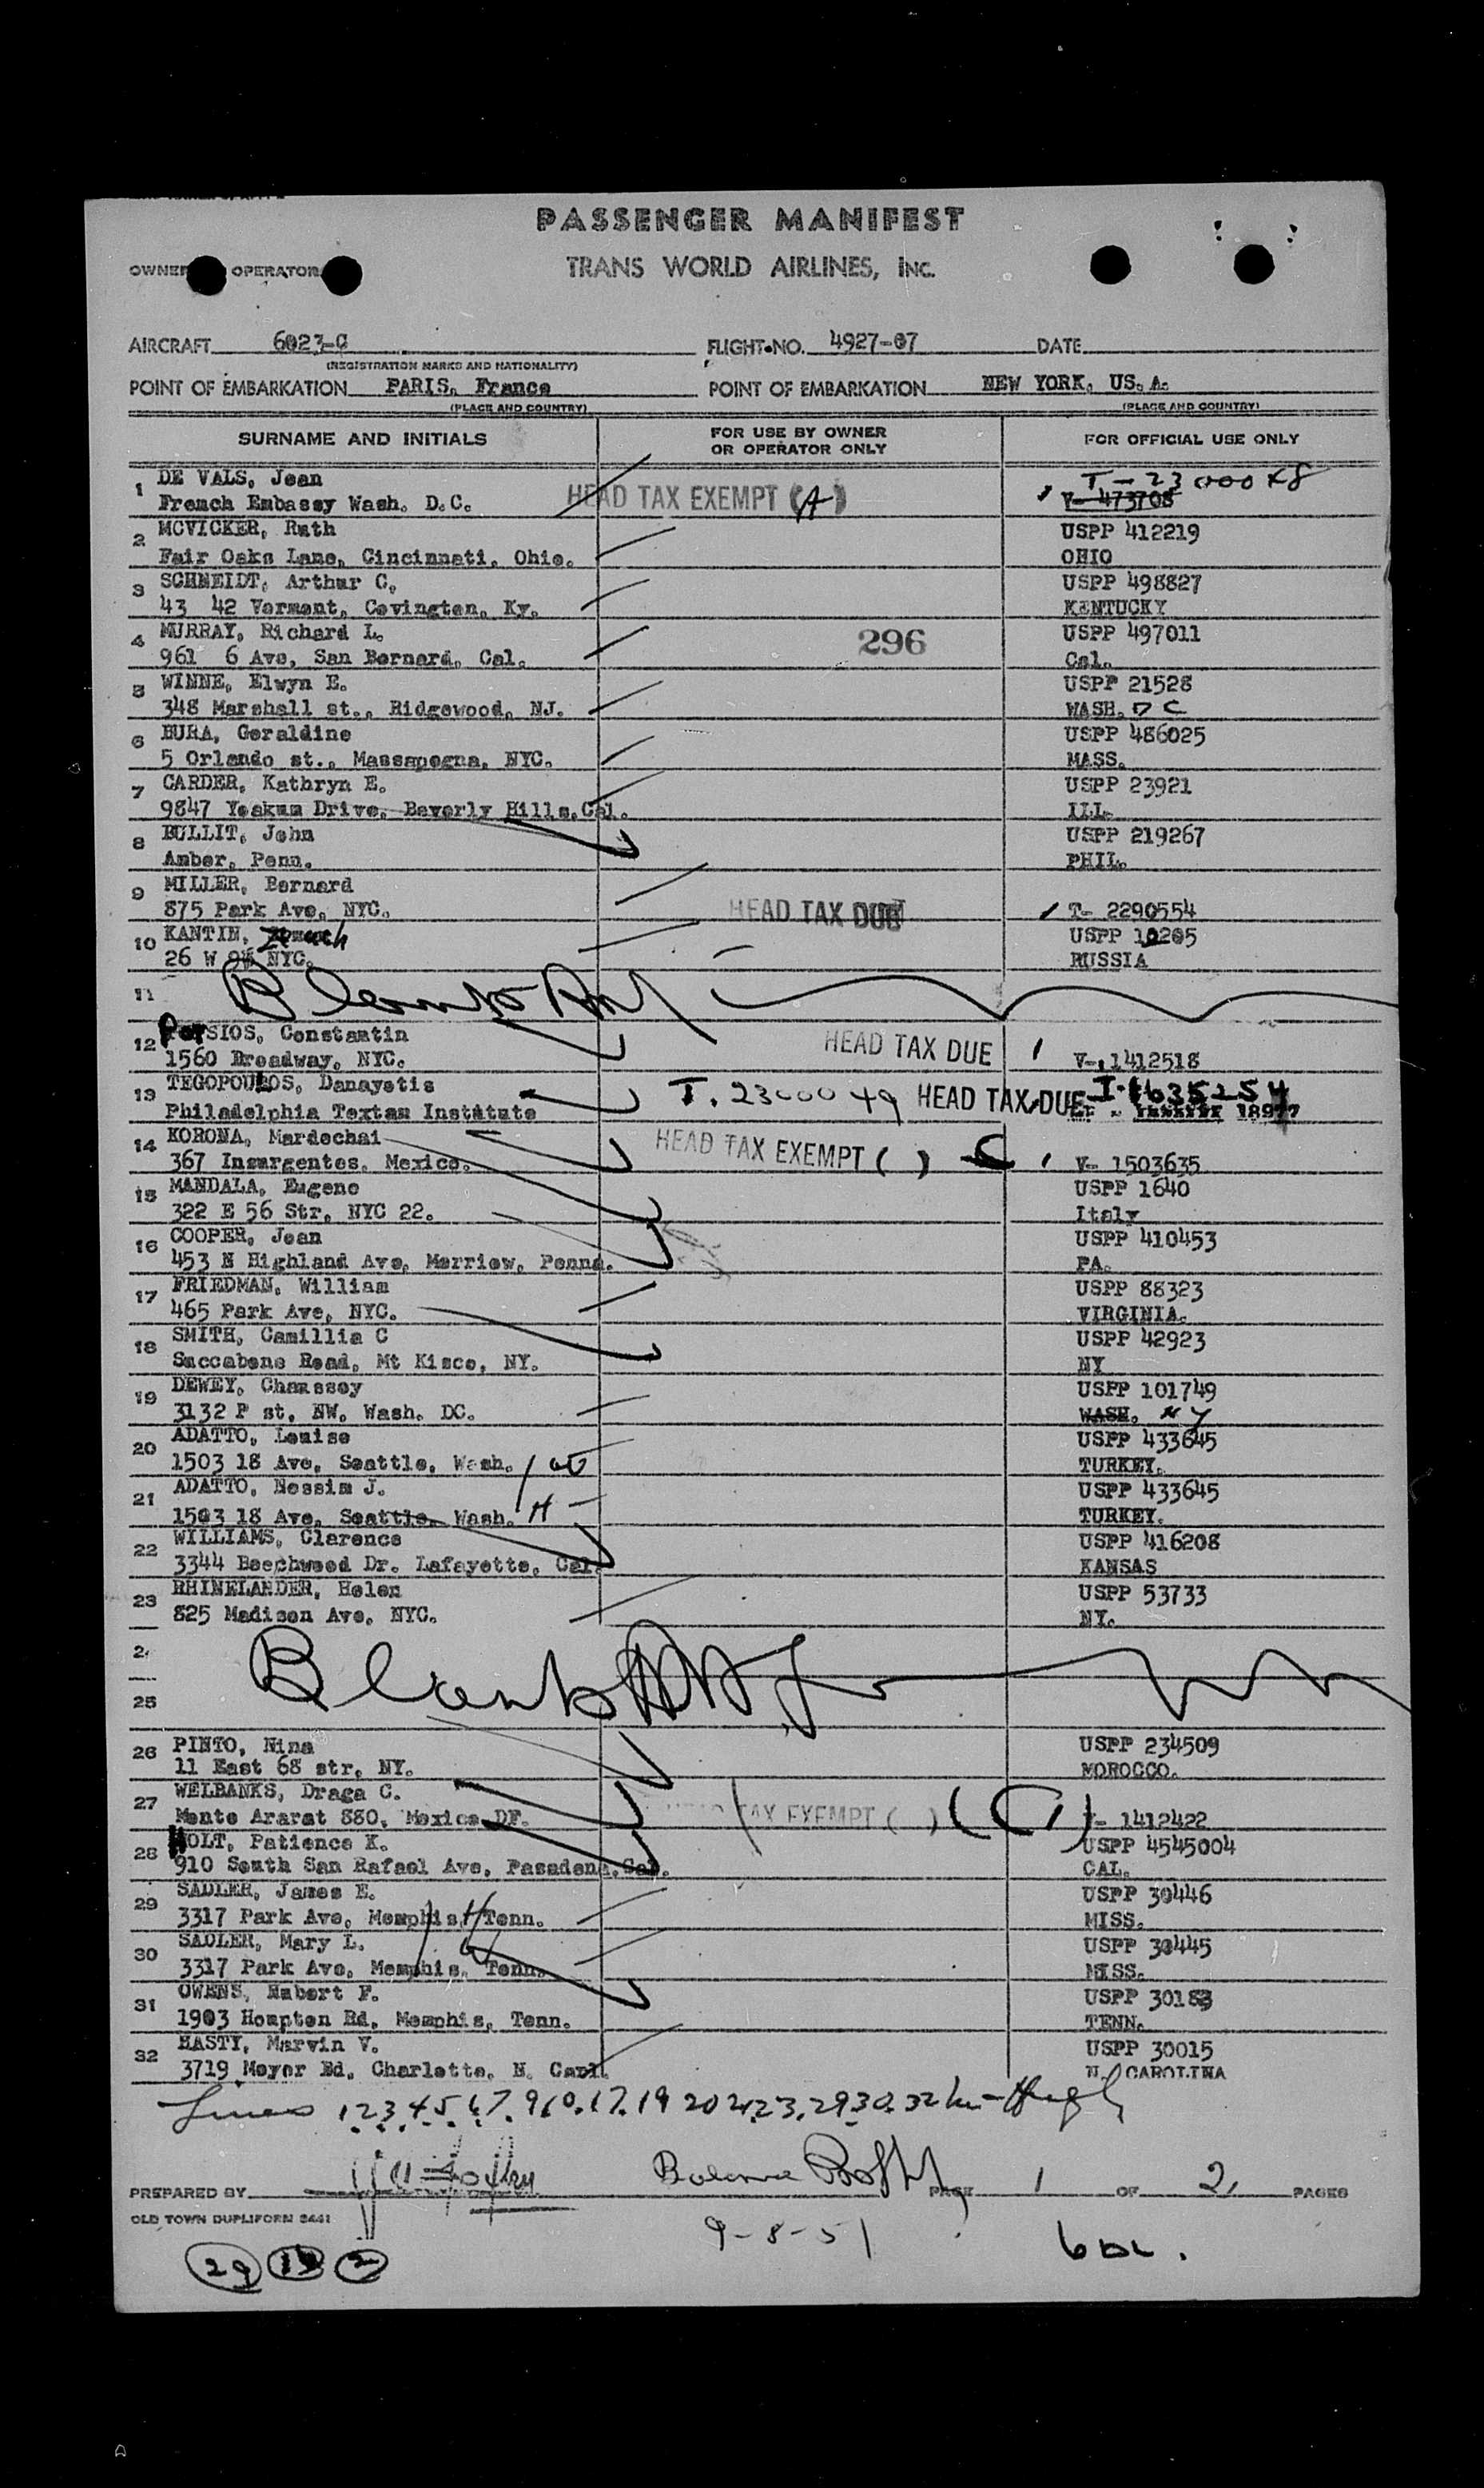 PASSENGER MANIFEST
OWNER OPERATOR TRANS WORLD AIRLINES, INC.
AIRCRAFT 6023-C FLIGHT NO. 4927-07 DATE
(REGISTRATION MARKS AND NATIONALITY)
POINT OF EMBARKATION PARIS, France POINT OF EMBARKATION NEW YORK, US.A.
(PLACE AND COUNTRY) (PLACE AND COUNTRY)
SURNAME AND INITIALS FOR USE BY OWNER OR OPERATOR ONLY FOR OFFICIAL USE ONLY
1 DE VALS, Jean T-2300048
French Embassy Wash. D.C. HEAD TAX EXEMPT (A) V- 473708
2 MCVICKER, Ruth USPP 412219
Fair Oaks Lane, Cincinnati, Ohio. OHIO
3 SCHNEIDT, Arthur C. USPP 498827
43 42 Vermont, Covington, Ky. KENTUCKY
4 MURRAY, Richard L. 296 USPP 497011
961 6 Ave, San Bernard, Cal. Cal.
5 WINNE, Elwyn E. USPP 21528
348 Marshall st., Ridgewood, NJ. WASH. D C
6 BURA, Geraldine USPP 486025
5 Orlando st., Massapegna, NYC. MASS.
7 CARDER, Kathryn E. USPP 23921
9847 Yoakum Drive, Beverly Hills, Cal. ILL.
8 BULLIT, John USPP 219267
Amber, Penn. PHIL.
9 MILLER, Bernard
875 Park Ave, NYC. HEAD TAX DUE T- 2290554
10 KANTIN, USPP 10205
26 W NYC. RUSSIA
11 Blank
12 SIOS, Constantin
1560 Broadway, NYC. HEAD TAX DUE V- 1412518
13 TEGOPOULOS, Danayotis T. 2300049 HEAD TAX DUE
Philadelphia Textam Institute
14 KORONA, Mardochai HEAD TAX EXEMPT ( ) C
367 Insurgentes, Mexico. V- 1503635
15 MANDALA, Eugene USPP 1640
322 E 56 Str, NYC 22. Italy
16 COOPER, Jean USPP 410453
453 N Highland Ave, Merriow, Penna. PA.
17 FRIEDMAN, William USPP 88323
465 Park Ave, NYC. VIRGINIA.
18 SMITH, Camillia C USPP 42923
Succabone Road, Mt Kisco, NY. NY
19 DEWEY, Chanssey USPP 101749
3132 P st, NW. Wash. DC. WASH. NY
20 ADATTO, Louise USPP 433645
1503 18 Ave, Seattle, Wash. TURKEY.
21 ADATTO, Nessim J. USPP 433645
1503 18 Ave, Seattle, Wash. H TURKEY.
22 WILLIAMS, Clarence USPP 416208
3344 Beechwood Dr. Lafayette, Cal. KANSAS
23 RHINELANDER, Helen USPP 53733
825 Madison Ave, NYC. NY.
24 Blank
25
26 PINTO, Nina USPP 234509
11 East 68 str, NY. MOROCCO.
27 WELBANKS, Draga C.
Monte Ararat 880, Mexico DF. HEAD TAX EXEMPT ( ) V- 1412422
28 HOLT, Patience K. USPP 4545004
910 South San Rafael Ave, Pasadena, Cal. CAL.
29 SADLER, James E. USPP 30446
3317 Park Ave, Memphis, Tenn. MISS.
30 SADLER, Mary L. USPP 30445
3317 Park Ave, Memphis, Tenn. MISS.
31 OWENS, Hubert F. USPP 30183
1903 Hompton Rd, Memphis, Tenn. TENN.
32 HASTI, Marvin V. USPP 30015
3719 Meyer Bd, Charlotte, N. Carol. N. CAROLINA
Lines 1 2 3 4 5 6 7 9 10. 17. 19 20 21 23. 29 30. 32
PREPARED BY Balance PAGE 1 OF 2 PAGES
OLD TOWN DUPLIFORM
9-8-51
29 2